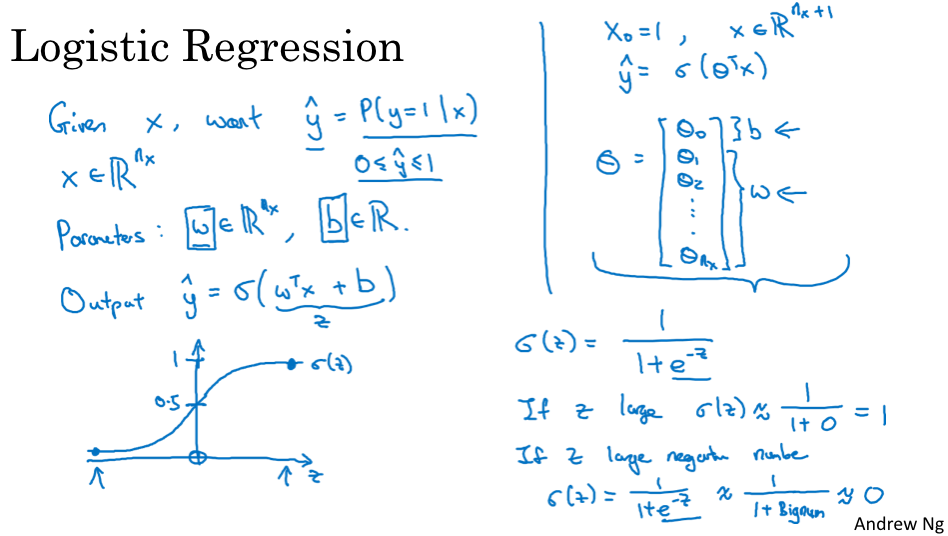 Logistic Regression
Given x, want ŷ = P(y=1|x)
0 ≤ ŷ ≤ 1
x ∈ ℝ^{n_x}
Parameters: w ∈ ℝ^{n_x}, b ∈ ℝ.
Output ŷ = σ(wᵀx + b)
z
1
σ(z)
0.5
z
x₀ = 1, x ∈ ℝ^{n_x+1}
ŷ = σ(θᵀx)
θ = [θ₀ θ₁ θ₂ ⋮ θ_{n_x}]
} b ←
} w ←
σ(z) = 1 / (1 + e^{-z})
If z large σ(z) ≈ 1 / (1 + 0) = 1
If z large negative number
σ(z) = 1 / (1 + e^{-z}) ≈ 1 / (1 + Bignum) ≈ 0
Andrew Ng